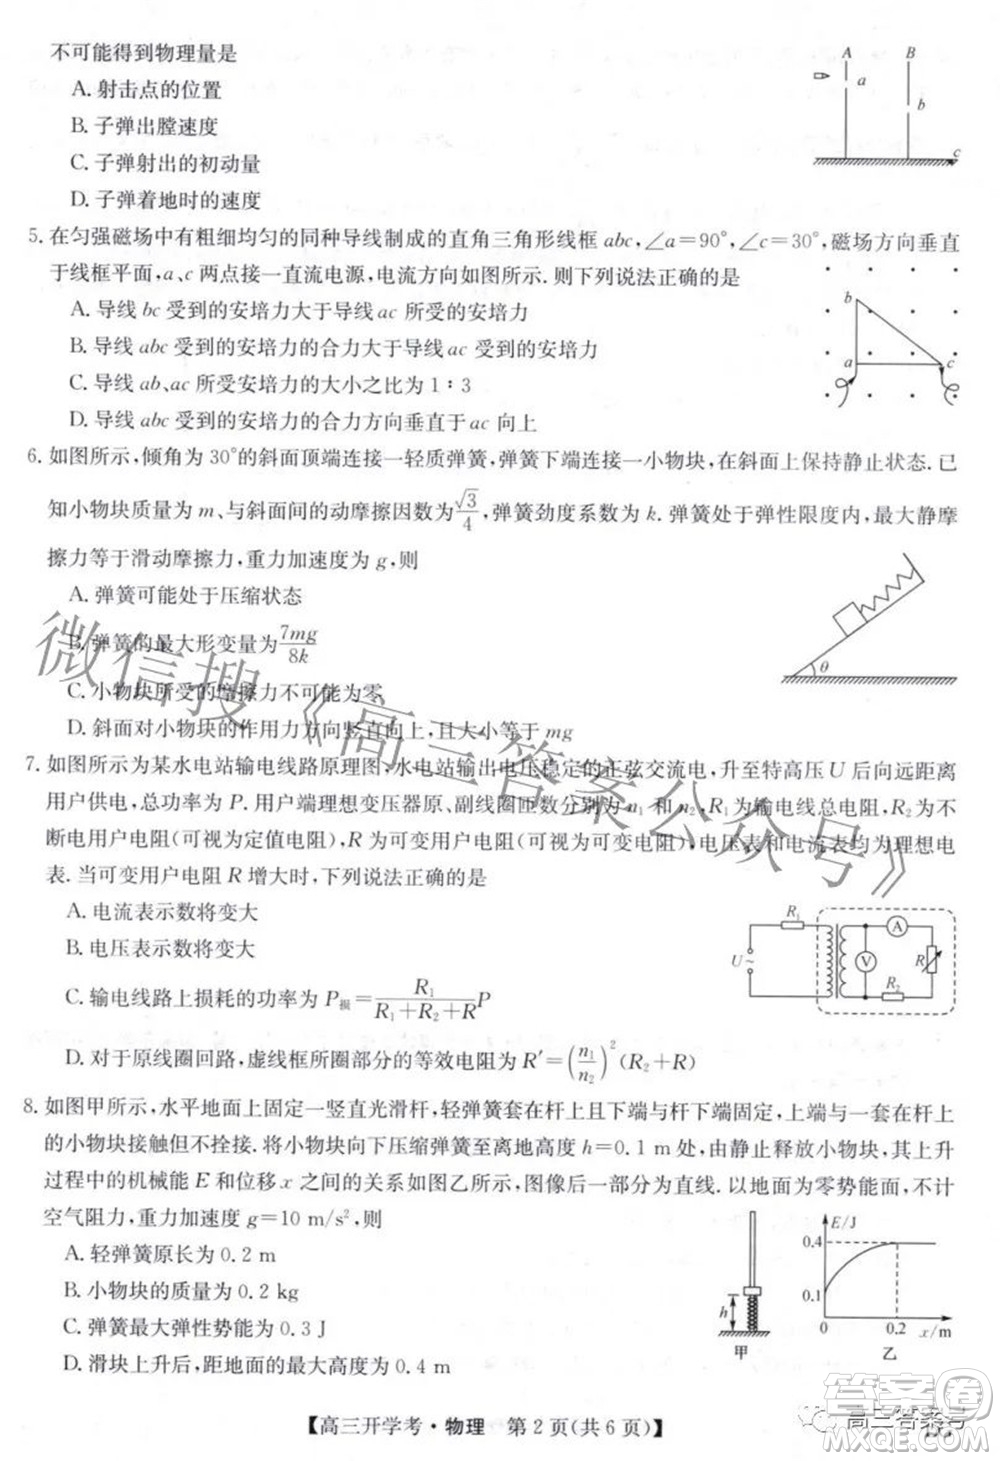 不可能得到物理量是
A. 射击点的位置
B. 子弹出膛速度
C. 子弹射出的初动量
D. 子弹着地时的速度
A
B
a
b
c
5. 在匀强磁场中有粗细均匀的同种导线制成的直角三角形线框 abc,∠a=90°,∠c=30°,磁场方向垂直
于线框平面,a、c 两点接一直流电源,电流方向如图所示. 则下列说法正确的是
A. 导线 bc 受到的安培力大于导线 ac 所受的安培力
B. 导线 abc 受到的安培力的合力大于导线 ac 受到的安培力
C. 导线 ab、ac 所受安培力的大小之比为 1∶3
D. 导线 abc 受到的安培力的合力方向垂直于 ac 向上
b
a
c
6. 如图所示,倾角为 30°的斜面顶端连接一轻质弹簧,弹簧下端连接一小物块,在斜面上保持静止状态. 已
知小物块质量为 m、与斜面间的动摩擦因数为√3/4,弹簧劲度系数为 k. 弹簧处于弹性限度内,最大静摩
擦力等于滑动摩擦力,重力加速度为 g,则
A. 弹簧可能处于压缩状态
B. 弹簧的最大形变量为7mg/8k
C. 小物块所受的摩擦力不可能为零
D. 斜面对小物块的作用力方向竖直向上,且大小等于 mg
θ
7. 如图所示为某水电站输电线路原理图,水电站输出电压稳定的正弦交流电,升至特高压 U 后向远距离
用户供电,总功率为 P. 用户端理想变压器原、副线圈匝数分别为 n₁ 和 n₂,R₁为输电线总电阻,R₂为不
断电用户电阻(可视为定值电阻),R 为可变用户电阻(可视为可变电阻),电压表和电流表均为理想电
表. 当可变用户电阻 R 增大时,下列说法正确的是
A. 电流表示数将变大
B. 电压表示数将变大
C. 输电线路上损耗的功率为 P损=R₁/(R₁+R₂+R)P
D. 对于原线圈回路,虚线框所圈部分的等效电阻为 R′=(n₁/n₂)²(R₂+R)
R₁
U
~
A
V
R
R₂
8. 如图甲所示,水平地面上固定一竖直光滑杆,轻弹簧套在杆上且下端与杆下端固定,上端与一套在杆上
的小物块接触但不拴接. 将小物块向下压缩弹簧至离地高度 h=0.1 m 处,由静止释放小物块,上升过
程中的机械能 E 和位移 x 之间的关系如图乙所示,图像后一部分为直线. 以地面为零势能面,不计
空气阻力,重力加速度 g=10 m/s²,则
A. 轻弹簧原长为 0.2 m
B. 小物块的质量为 0.2 kg
C. 弹簧最大弹性势能为 0.3 J
D. 滑块上升后,距地面的最大高度为 0.4 m
h
甲
E/J
0.4
0.1
0
0.2
x/m
乙
【高三开学考·物理 第 2 页(共 6 页)】
微信搜《高三答案公众号》
高三答案号
答案圈